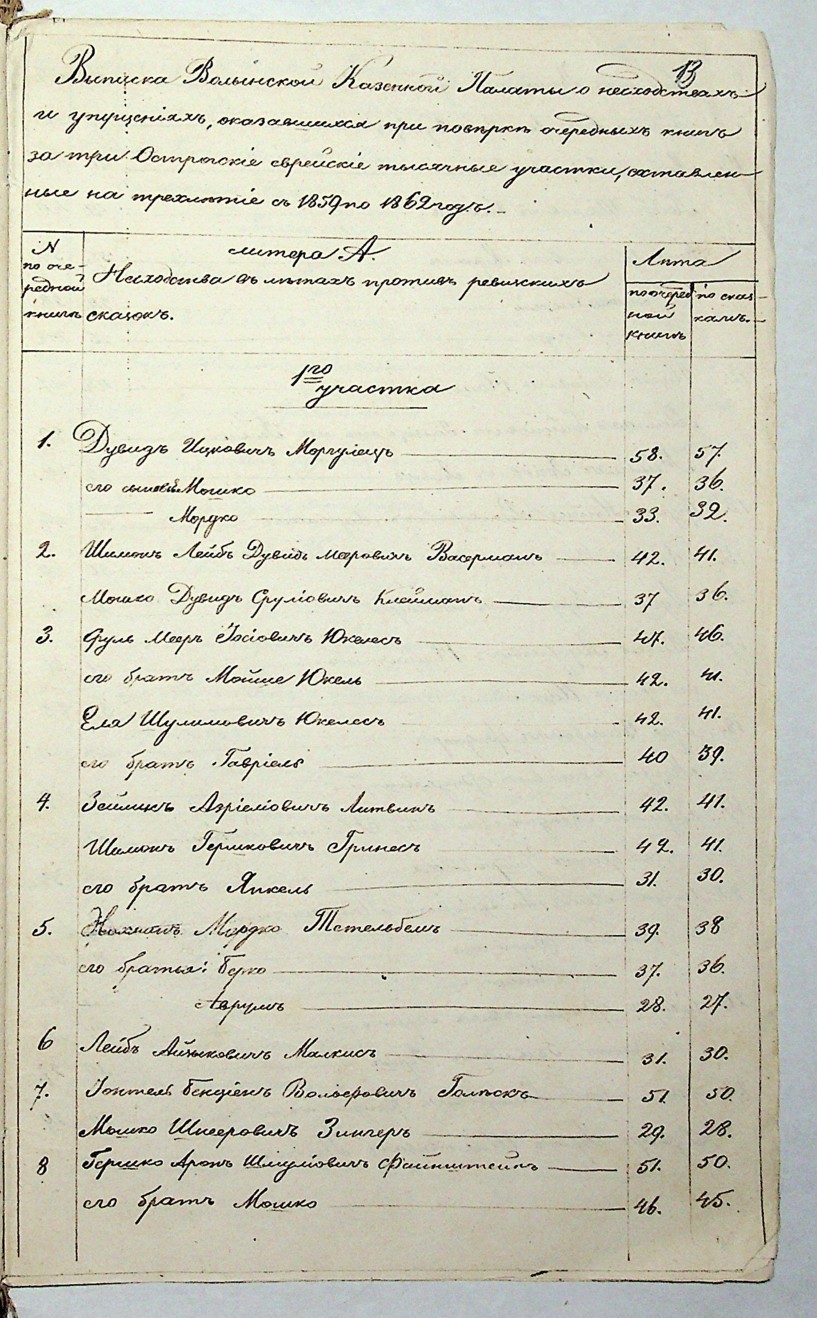 13
Выписка Волынской Казенной Палаты о несходствахъ
и упущеніяхъ, оказавшихся при повѣркѣ очередныхъ книгъ
за три Острогскіе еврейскіе тысячные участки, составлен-
ные на трехлѣтіе съ 1859 по 1862 годъ.
N по оче- редной книгѣ
литера А.
Несходства въ лѣтахъ противъ ревизскихъ
сказокъ.
Лѣта
по очеред ной книгѣ
по сказ- камъ.
1го участка
1. Дувидъ Ицковичъ Моргулецъ 58. 57.
его сыновья Мошко 37. 36.
Мордко 33. 32.
2. Шимонъ Лейбъ Дувидъ Мееровичъ Васерманъ 42. 41.
Мошко Дувидъ Сруліовичъ Клейманъ 37 36.
3. Фуль Мееръ Іосіовичъ Юкелесъ 47. 46.
его братъ Мойше Юкель 42. 41.
Еля Шулимовичъ Юкелесъ 42. 41.
его братъ Гавріель 40 39.
4. Зейликъ Азріеліовичъ Литвинъ 42. 41.
Шимонъ Гершковичъ Гринесъ 42. 41.
его братъ Янкель 31. 30.
5. Мордко Тетельбемъ 39. 38
его братья: Берко 37. 36.
Аврумъ 28. 27.
6 Лейбъ Айзыковичъ Малкисъ 31. 30.
7. Іонтель Бенціенъ Вольфовичъ 51. 50.
Мошко Шнееровичъ Зингеръ 29. 28.
8 Гершко Аронъ Шмуліовичъ Файнштейнъ 51. 50.
его братъ Мошко 46. 45.